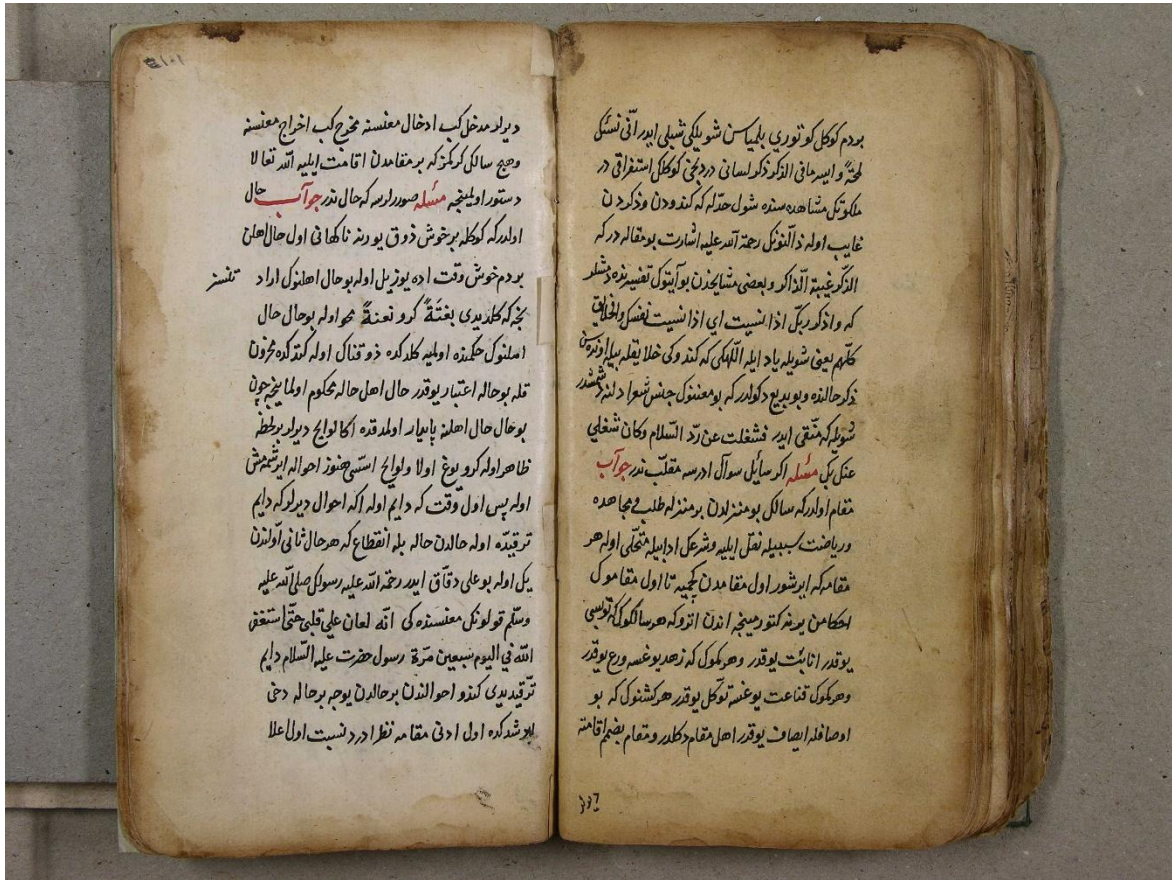 بودم كوكل كوتوري بلمياسن شويلكي شبلي ايدر انّي نسئتك
لمحةً و ايسر مافي الذكر ذكر لساني دردخي كوكلك استغراقي در
ملكوتك مشاهده سنده شول حدّله كه كندودن وذكردن
غايب اوله ذاالنّونك رحمة اللّه عليه اشارت بو مقاله دركه
الذّكر غيبة الذّاكر وبعضى مشايخدن بوآيتوك تفسيرنده دمشلر
كه واذكر ربّك اذا نسيت اي اذا نسيت نفسك والخلايق
كلّهم يعني شويله ياد ايله اللّهكي كه كندوكي خلايقله بيله اونوده سن
ذكر حالنده وبوبديع دكولدر كه بومعنينوك جنس شعرا دلنده دمشلردر
شويله كه متنقّى ايدر فشغلت عن ردّ السّلام وكان شغلي
عنك بك مسئله اكر سايل سوآل ادرسه مقلّب ندر جوآب
مقام اولدركه سالك بومنزلدن برمنزله طلب ومجاهده
ورياضت سببيله نقل ايليه وشرعك ادابيله متحلّى اوله هر
مقامه كه ايرشور اول مقامدن كجميه تا اول مقاموك
احكامن يرينه كتورمينجه اندن اتروكه هر سالكوك كه توبسى
يوقدر انابت يوقدر وهركموك كه زهد يوغسه ورع يوقدر
وهركموك قناعت يوغسه توكّل يوقدر هر كشنوك كه بو
اوصافله ايصاف يوقدر اهل مقام دكلدر ومقام بضمّ اقامته
ديرلر مدخل كب ادخال معنسنه مخرج كب اخراج معنسنه
وهيج سالك كركمز كه برمقامدن اقامت ايليه اللّه تعالا
دستور اولمينجه مسئله صوررلرسه كه حال ندر جوآب حال
اولدركه كوكله برخوش ذوق يورنه ناكهانى اول حال اهلن
بردم خوش وقت اده يوزيل اوله بوحال اهلنوك اراد تنسز
نجه كه كلديدى بغتةً كرو نعنةً محو اوله بوحال حال
اهلنوك حكمنده اولميه كلدكده ذوقناك اوله كتدكده محزون
قله بوحاله اعتبار يوقدر حال اهل حاله محكوم اولماينجه چون
بوحال حال اهلنه پايدار اولمدقده اكا لوايح ديرلر بر لحظه
ظاهر اوله كرو يوغ اولا ولوايح اسّى هنوز احواله ايرشمه مش
اوله پس اول وقت كه دايم اوله اكه احوال ديرلركه دايم
ترقيده اوله حالدن حاله بله انقطاع كه هر حال ثانى اوّلندن
يك اوله بوعلى دقّاق ايدر رحمة اللّه عليه رسولك صلى اللّه عليه
وسلّم قولونك معنسنده كى انّه لعان على قلبى حتّى استغفر
اللّه في اليوم سبعين مرّة رسول حضرت عليه السّلام دايم
ترقيديدى كندو احوالندن برحالدن يوجه برحاله دخى
ايرشدكده اول ادنى مقامه نظر ادرد نسبت اول اعلا